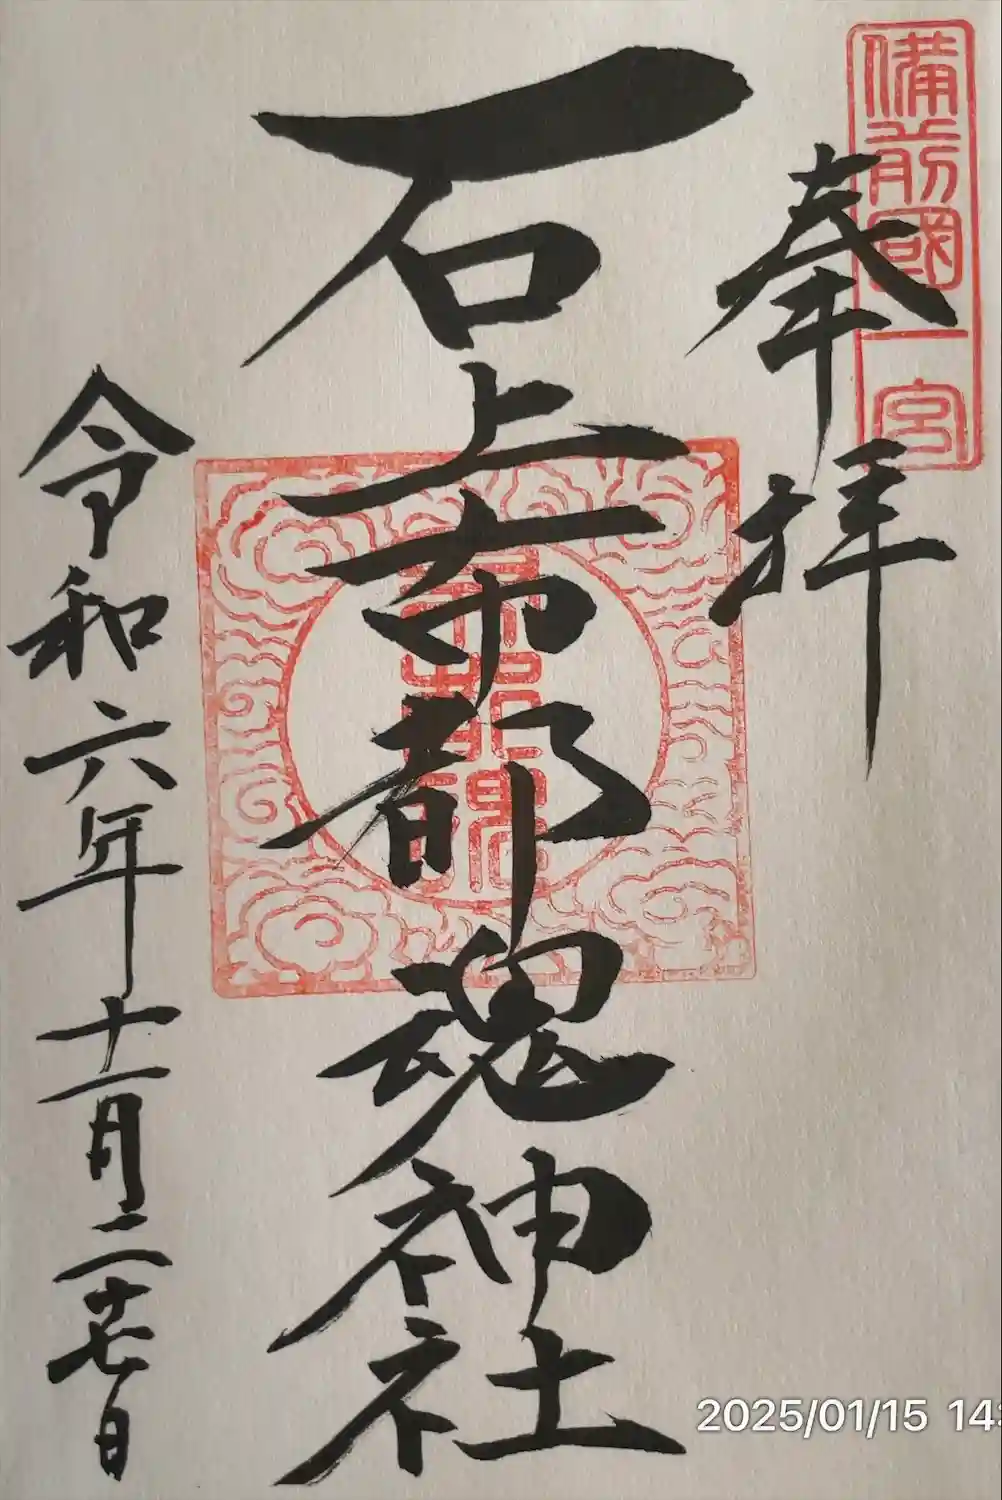 備前國一宮
奉拝
石上布都魂神社
令和六年十一月二十七日
2025/01/15 14: